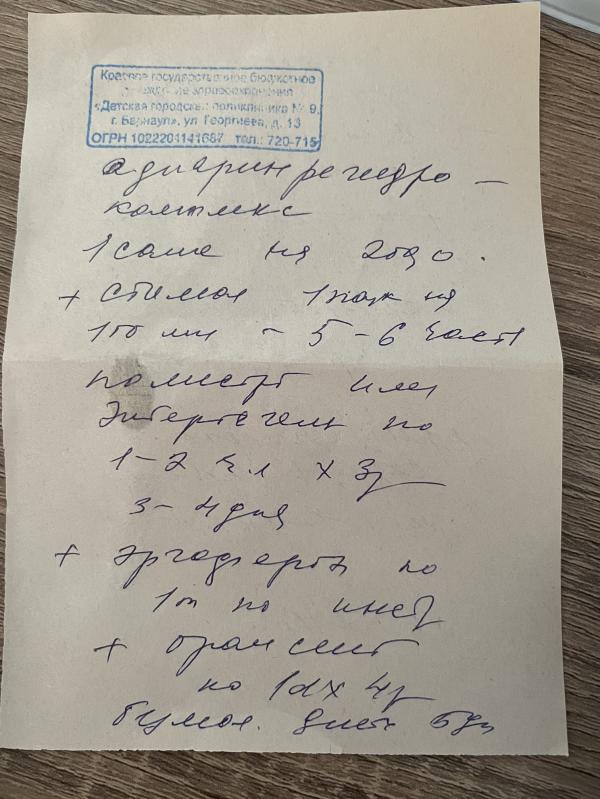 Краевое государственное бюджетное
учреждение здравоохранения
«Детская городская поликлиника № 9,
г. Барнаул», ул. Георгиева, д. 13
ОГРН 1022201141687 тел.: 720-715
адиарин регидро –
комплекс
1 саше на
+ стимол 1 пак на
100 мл – 5-6 части
полисорб или
Энтеросгель по
1-2 ч л х 3р
3-4 дня
+ эрсефурил по
1 т по
+
по 1d х 4р